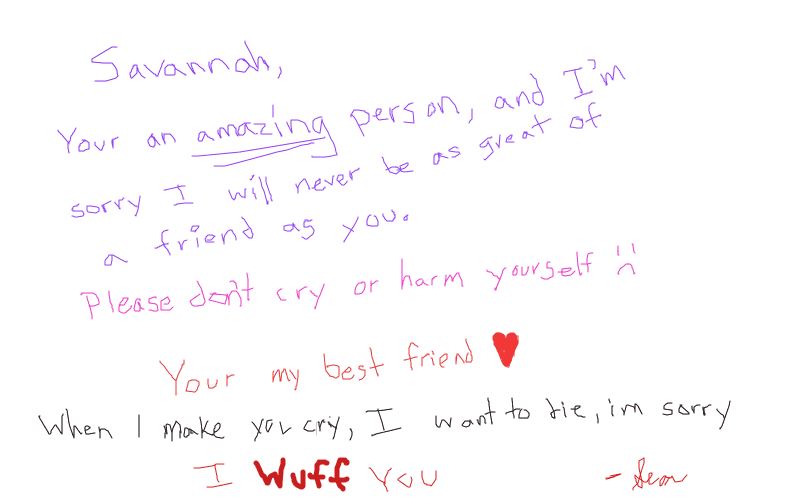 Savannah,
Your an amazing person, and I'm
sorry I will never be as great of
a friend as you.
Please don't cry or harm yourself :(
Your my best friend ♥
When I make you cry, I want to die, im sorry
I Wuff You
- Sean